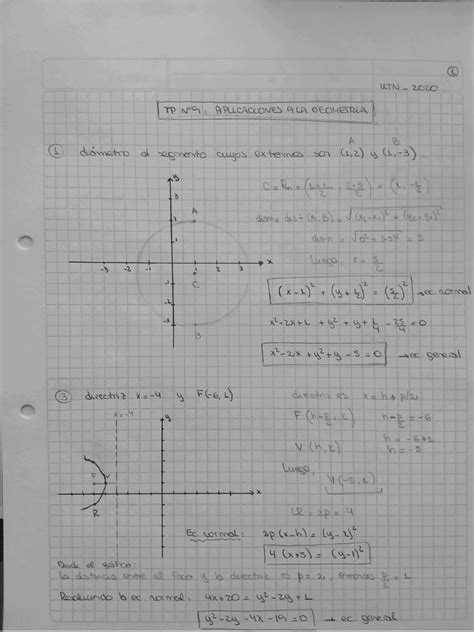 1
UTN - 2020
TP N°9: APLICACIONES A LA GEOMETRÍA
① diámetro el segmento cuyos extremos son (1,2) y (1,-3)
A B
C = Pm = (1+1/2, 2-3/2) = (1, -1/2)
diam = dist(A, B) = √(x₂-x₁)² + (y₂-y₁)²
diam = √0² + (-5)² = 5
Luego, r = 5/2
(x-1)² + (y+1/2)² = (5/2)² → ec normal
x²-2x+1 + y² + y + 1/4 - 25/4 = 0
x²-2x+y²+y-5=0 → ec general
y
3
2
A
1
-3 -2 -1 1 2 3 x
C
B
③ directriz x=-4 y F(-6, 1)
directriz es x = h + p/2
F(h-p/2, k) h-p/2 = -6
V(h,k) h = -6+1
h = -5
Luego, V(-5, 1)
LR = 2p = 4
x=-4
y
F
x
R
Ec. normal: 2p(x-h) = (y-k)²
4(x+5) = (y-1)²
Desde el gráfico:
La distancia entre el foco y la directriz es p=2, entonces p/2 = 1
Resolviendo la ec. normal: 4x+20 = y²-2y+1
y²-2y-4x-19=0 → ec general